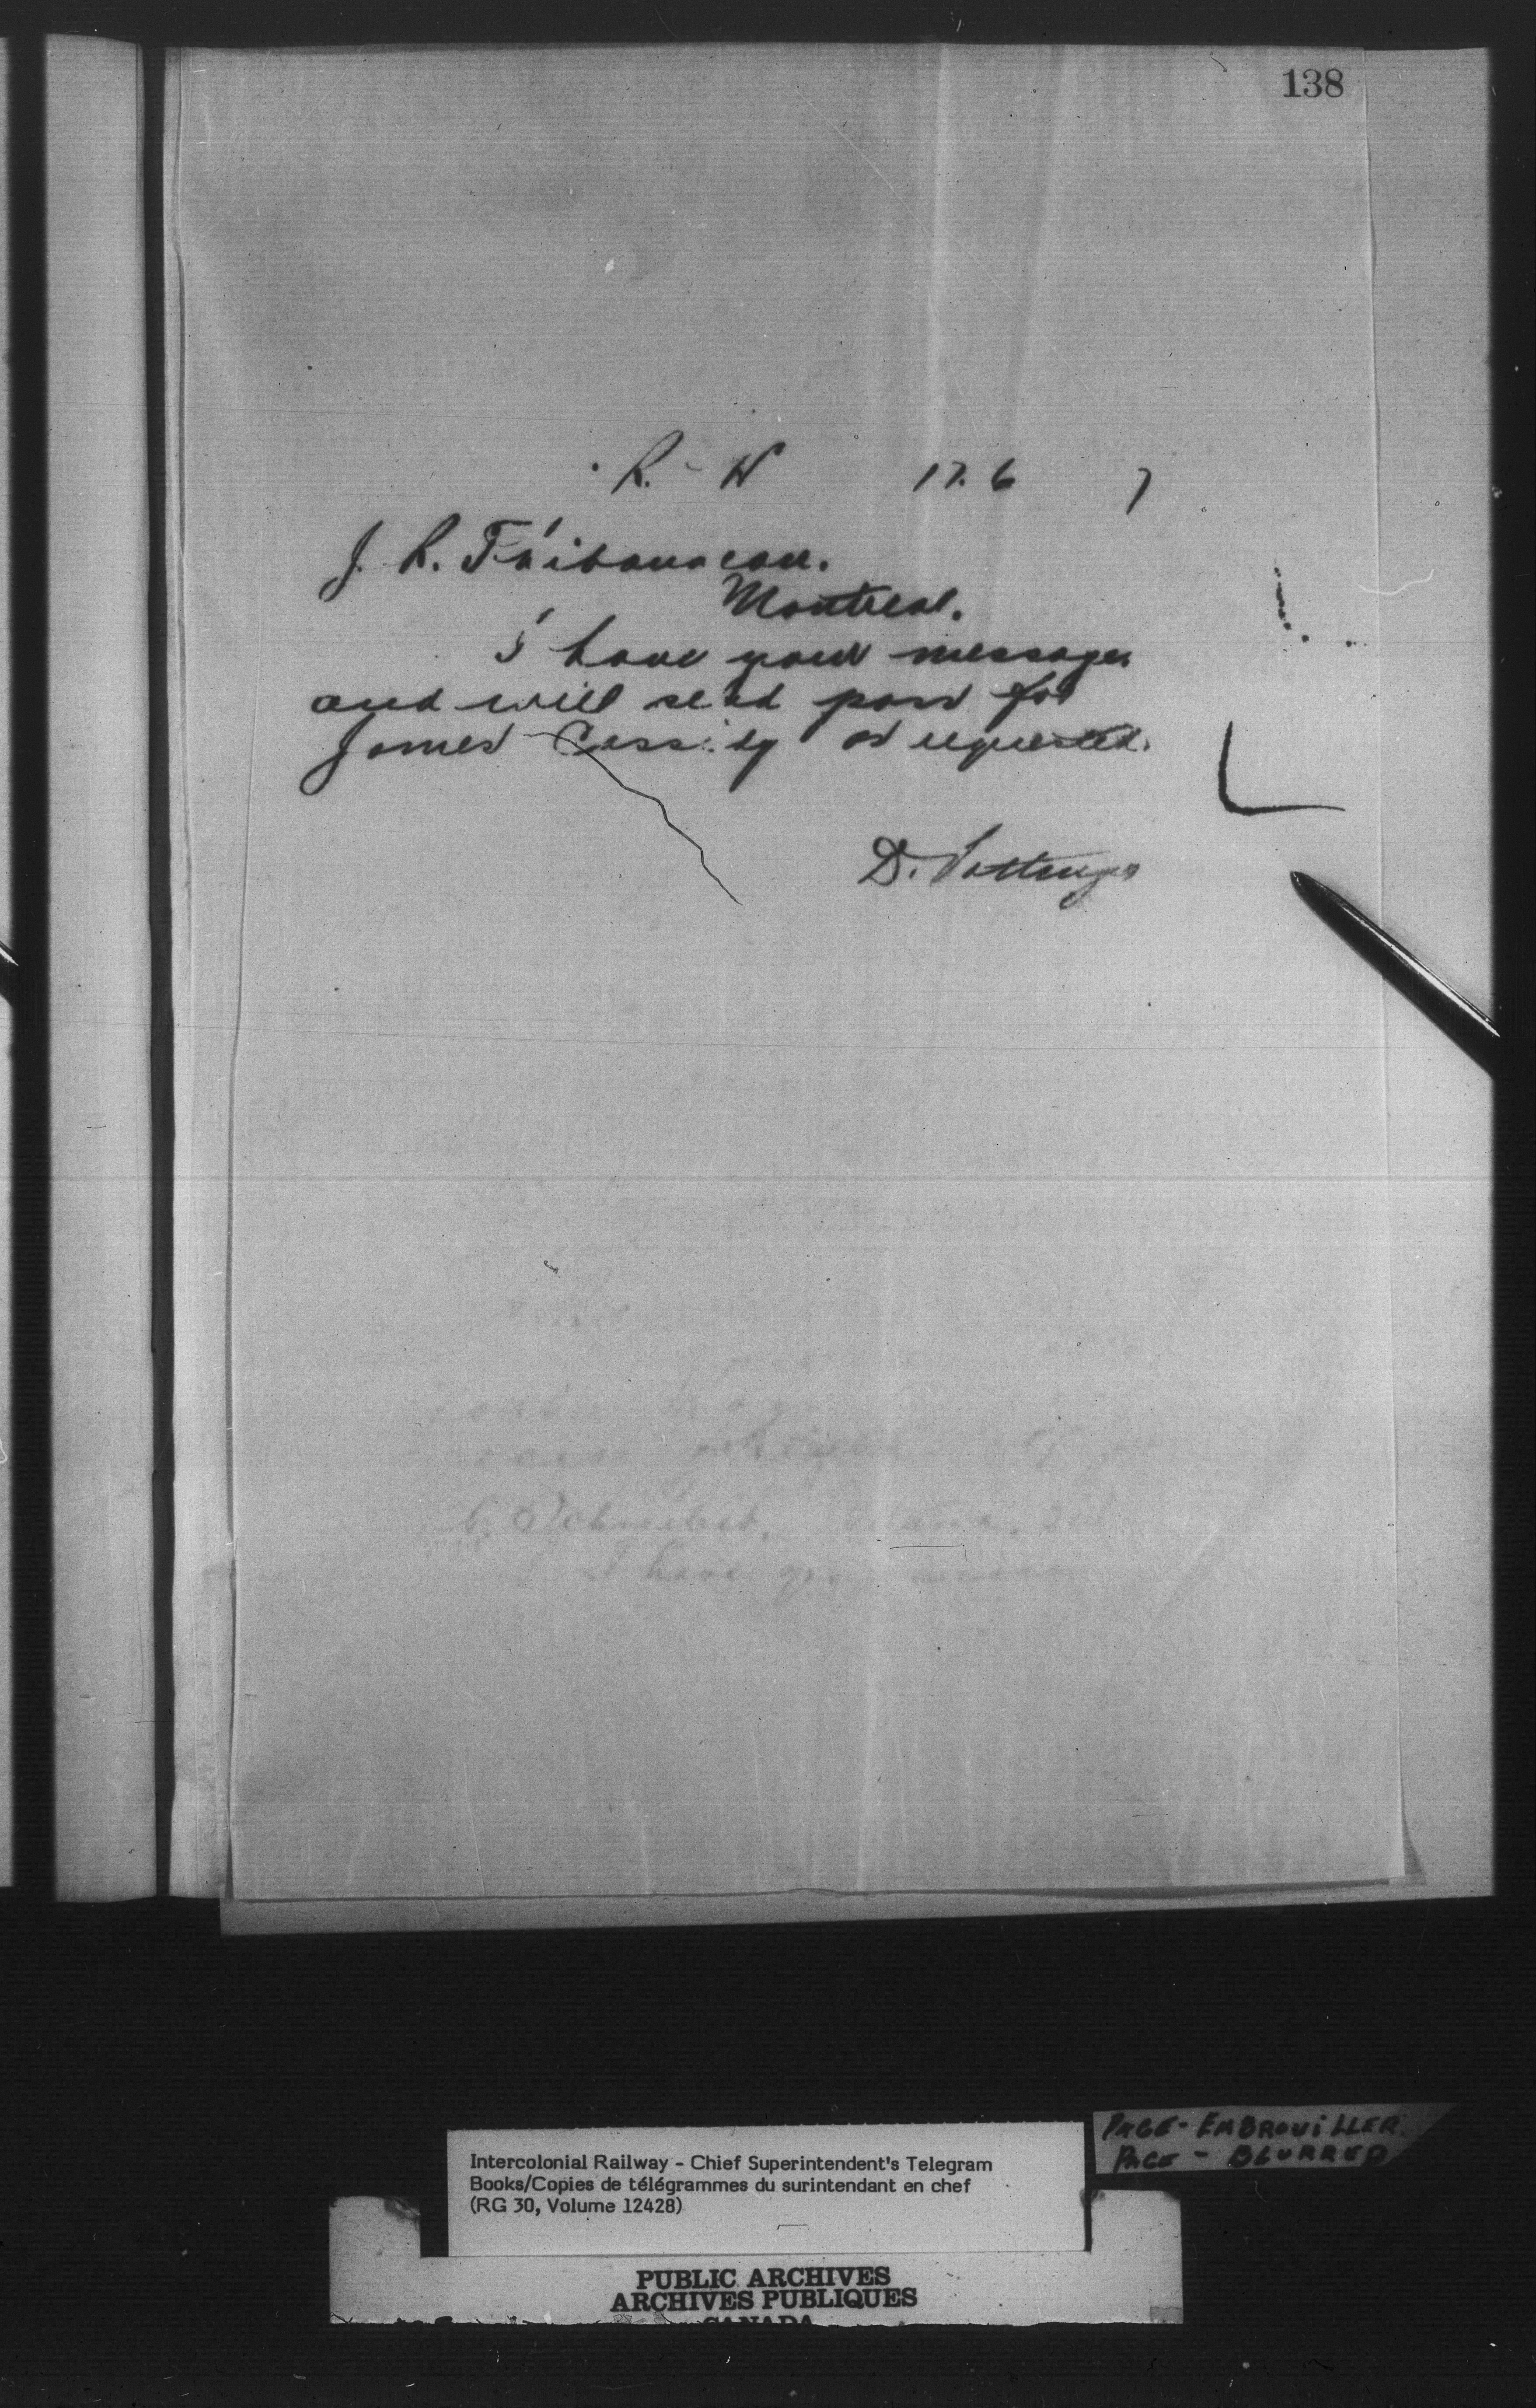 138
R. - W 17. 6 7
J. R. Thibaudeau.
Montreal.
I have your message
and will send pass for
James Cassidy as requested.
D. Pottinger
C. Schreiber.
I have
PAGE - EMBROUILLER.
PAGE - BLURRED
Intercolonial Railway - Chief Superintendent's Telegram
Books/Copies de télégrammes du surintendant en chef
(RG 30, Volume 12428)
PUBLIC ARCHIVES
ARCHIVES PUBLIQUES
CANADA